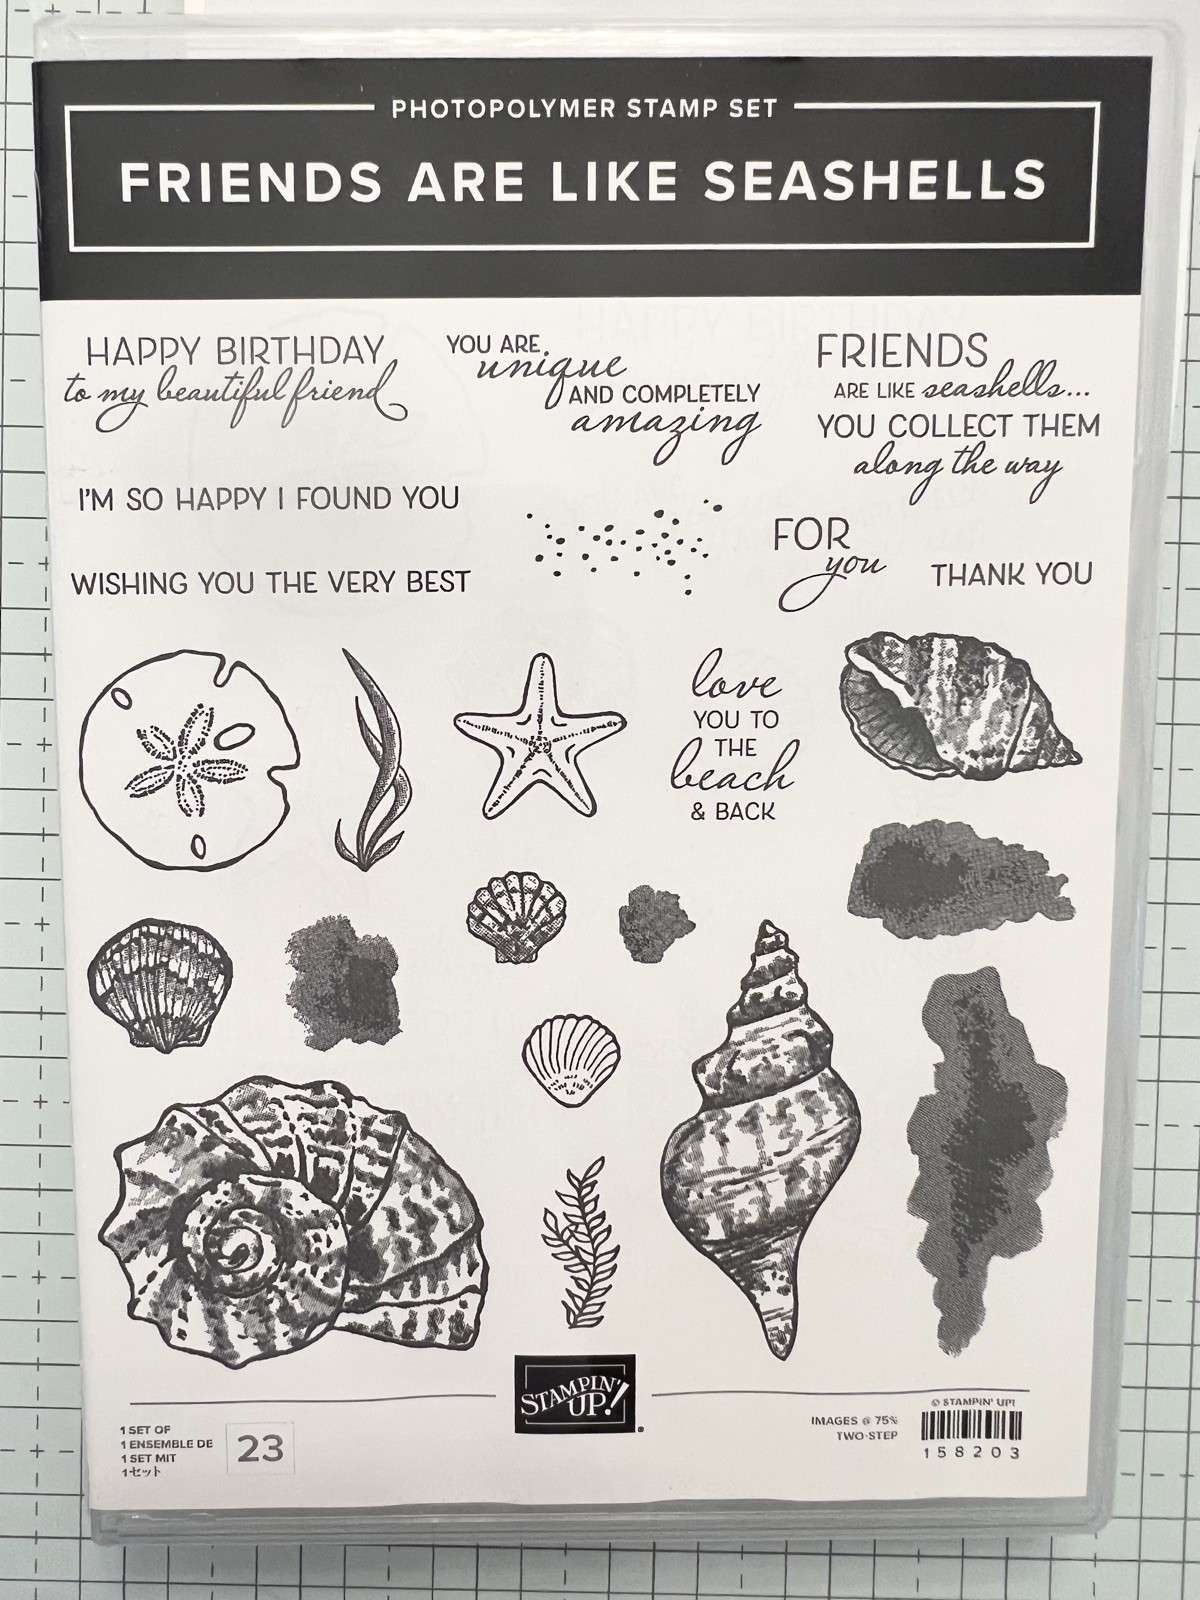 PHOTOPOLYMER STAMP SET
FRIENDS ARE LIKE SEASHELLS
HAPPY BIRTHDAY
to my beautiful friend
YOU ARE
unique
AND COMPLETELY
amazing
FRIENDS
ARE LIKE seashells...
YOU COLLECT THEM
along the way
I'M SO HAPPY I FOUND YOU
FOR
you
THANK YOU
WISHING YOU THE VERY BEST
love
YOU TO
THE
beach
& BACK
STAMPIN'
UP!®
1 SET OF
1 ENSEMBLE DE
1 SET MIT
1セット
23
IMAGES @ 75%
TWO-STEP
© STAMPIN' UP!
158203